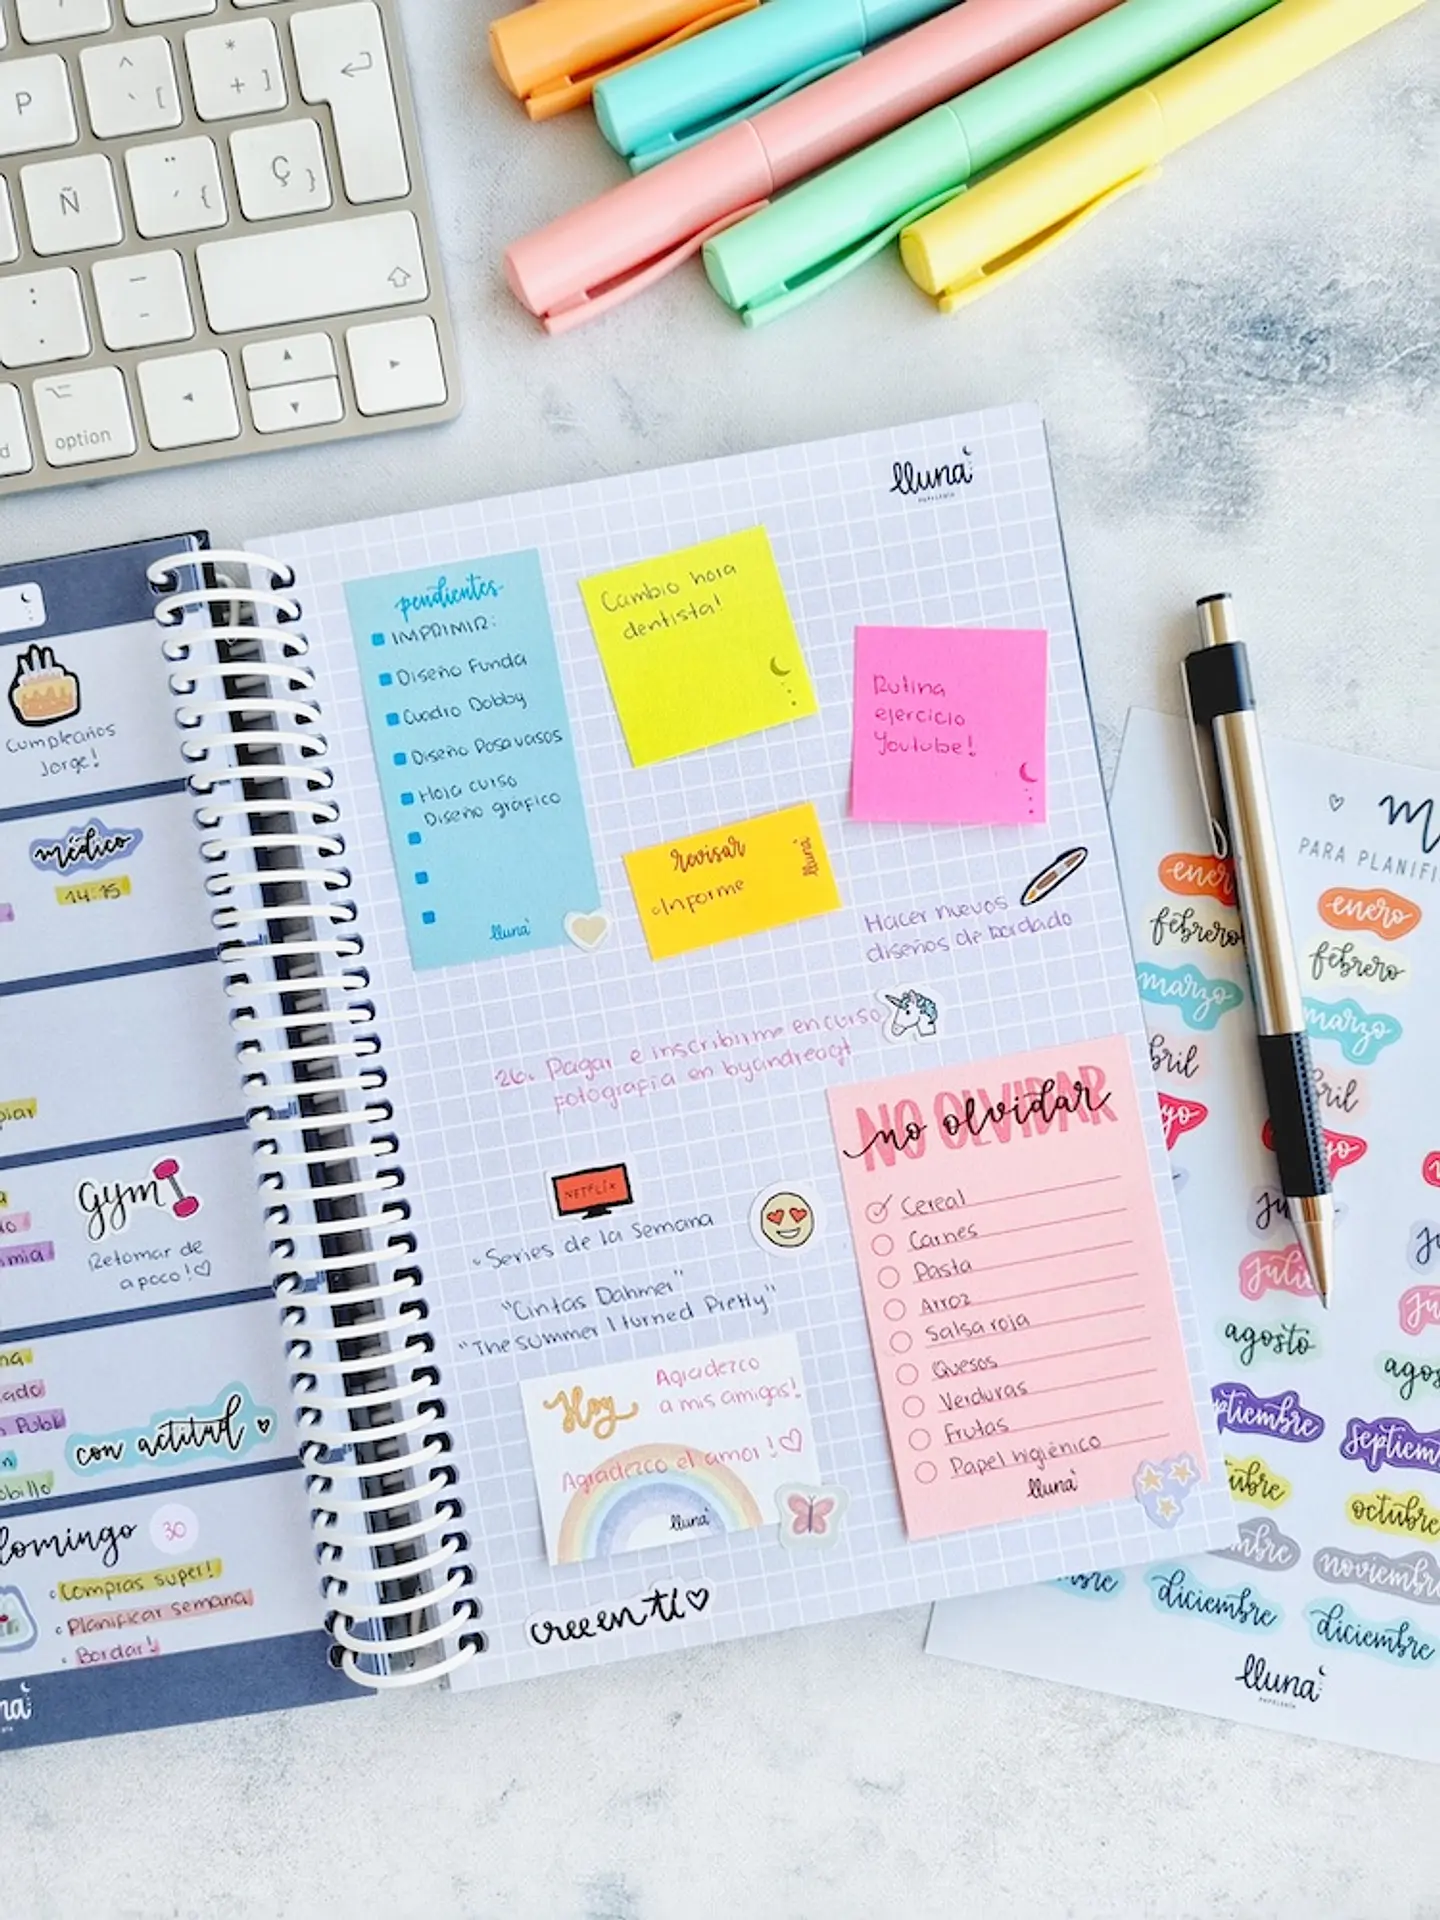 P
^
` [
*
+ ]
Ñ
¨
´ {
Ç }
:
.
–
-
option
lluna
PAPELERÍA
pendientes
IMPRIMIR:
Diseño Funda
Cuadro Dobby
Diseño Posavasos
Hoja curso
Diseño gráfico
lluna
Cambio hora
dentista!
Rutina
ejercicio
Youtube!
revisar
Informe
lluna
Hacer nuevos
diseños de bordado
26. Pagar e inscribirme en curso
fotografía en byandreagt
NETFLIX
Series de la Semana
"Cintas Dahmer"
"The summer I turned Pretty"
NO OLVIDAR
no olvidar
Cereal
Carnes
Pasta
Arroz
Salsa roja
Quesos
Verduras
Frutas
Papel higiénico
lluna
Hoy
Agradezco
a mis amigas!
Agradezco el amor!
lluna
cree en ti
Cumpleaños
Jorge!
médico
14:15
gym
Retomar de
a poco!
con actitud
domingo 30
Compras super!
Planificar semana
Bordar!
PARA PLANIFI
enero
febrero
marzo
febrero
marzo
julio
agosto
septiembre
octubre
noviembre
diciembre
diciembre
lluna
PAPELERÍA